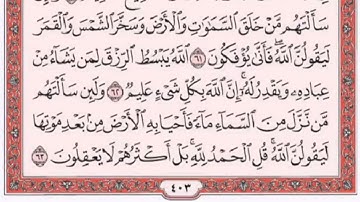 سَأَلْتَهُم مَّنْ خَلَقَ السَّمَٰوَٰتِ وَالْأَرْضَ وَسَخَّرَ الشَّمْسَ وَالْقَمَرَ
لَيَقُولُنَّ اللَّهُ ۖ فَأَنَّىٰ يُؤْفَكُونَ ۝٦١ اللَّهُ يَبْسُطُ الرِّزْقَ لِمَن يَشَاءُ مِنْ
عِبَادِهِ وَيَقْدِرُ لَهُ ۚ إِنَّ اللَّهَ بِكُلِّ شَيْءٍ عَلِيمٌ ۝٦٢ وَلَئِن سَأَلْتَهُم
مَّن نَّزَّلَ مِنَ السَّمَاءِ مَاءً فَأَحْيَا بِهِ الْأَرْضَ مِن بَعْدِ مَوْتِهَا
لَيَقُولُنَّ اللَّهُ ۚ قُلِ الْحَمْدُ لِلَّهِ ۚ بَلْ أَكْثَرُهُمْ لَا يَعْقِلُونَ ۝٦٣
٤٠٣